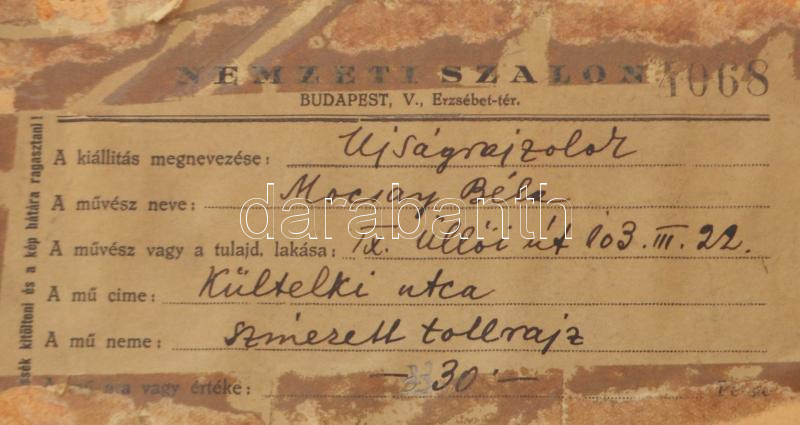 NEMZETI SZALON 4068
BUDAPEST, V., Erzsébet-tér.
A kiállitás megnevezése: Ujságrajzolók
A művész neve: Mocsay Béla
A művész vagy a tulajd. lakása: IX. Üllői út 103. III. 22.
A mű cime: Kültelki utca
A mű neme: szinezett tollrajz
A mű ára vagy értéke: — 30 —
kitölteni és a kép hátára ragasztani!
darabanth